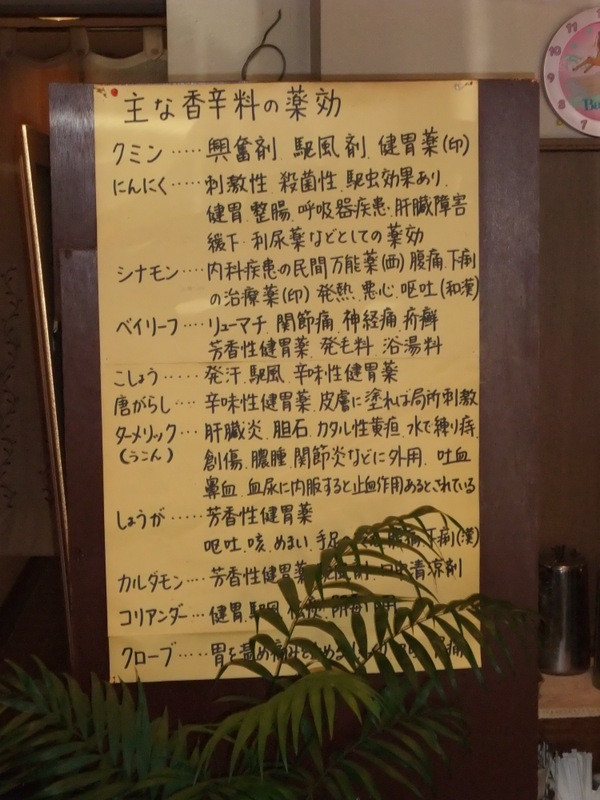 主な香辛料の薬効
クミン‥‥‥興奮剤、駆風剤、健胃薬(印)
にんにく‥‥‥刺激性、殺菌性、駆虫効果あり、
健胃、整腸、呼吸器疾患、肝臓障害
緩下、利尿薬などとしての薬効
シナモン‥‥内科疾患の民間万能薬(西)腹痛、下痢
の治療薬(印)発熱、悪心、嘔吐(和漢)
ベイリーフ‥‥リューマチ、関節痛、神経痛、疥癬
芳香性健胃薬、発毛料、浴湯料
こしょう‥‥‥発汗、駆風、辛味性健胃薬
唐がらし‥‥辛味性健胃薬、皮膚に塗れば局所刺激
ターメリック‥‥肝臓炎、胆石、カタル性黄疸、水で練り痔、
(うこん) 創傷、膿腫、関節炎などに外用、吐血
鼻血、血尿に内服すると止血作用あるとされている
しょうが‥‥‥芳香性健胃薬
嘔吐、咳、めまい、手足 下痢(漢)
カルダモン‥‥芳香性健胃薬 清涼剤
コリアンダー‥‥健胃、駆風
クローブ‥‥‥胃を温め痛みを止める
12
11
10
9
8
7